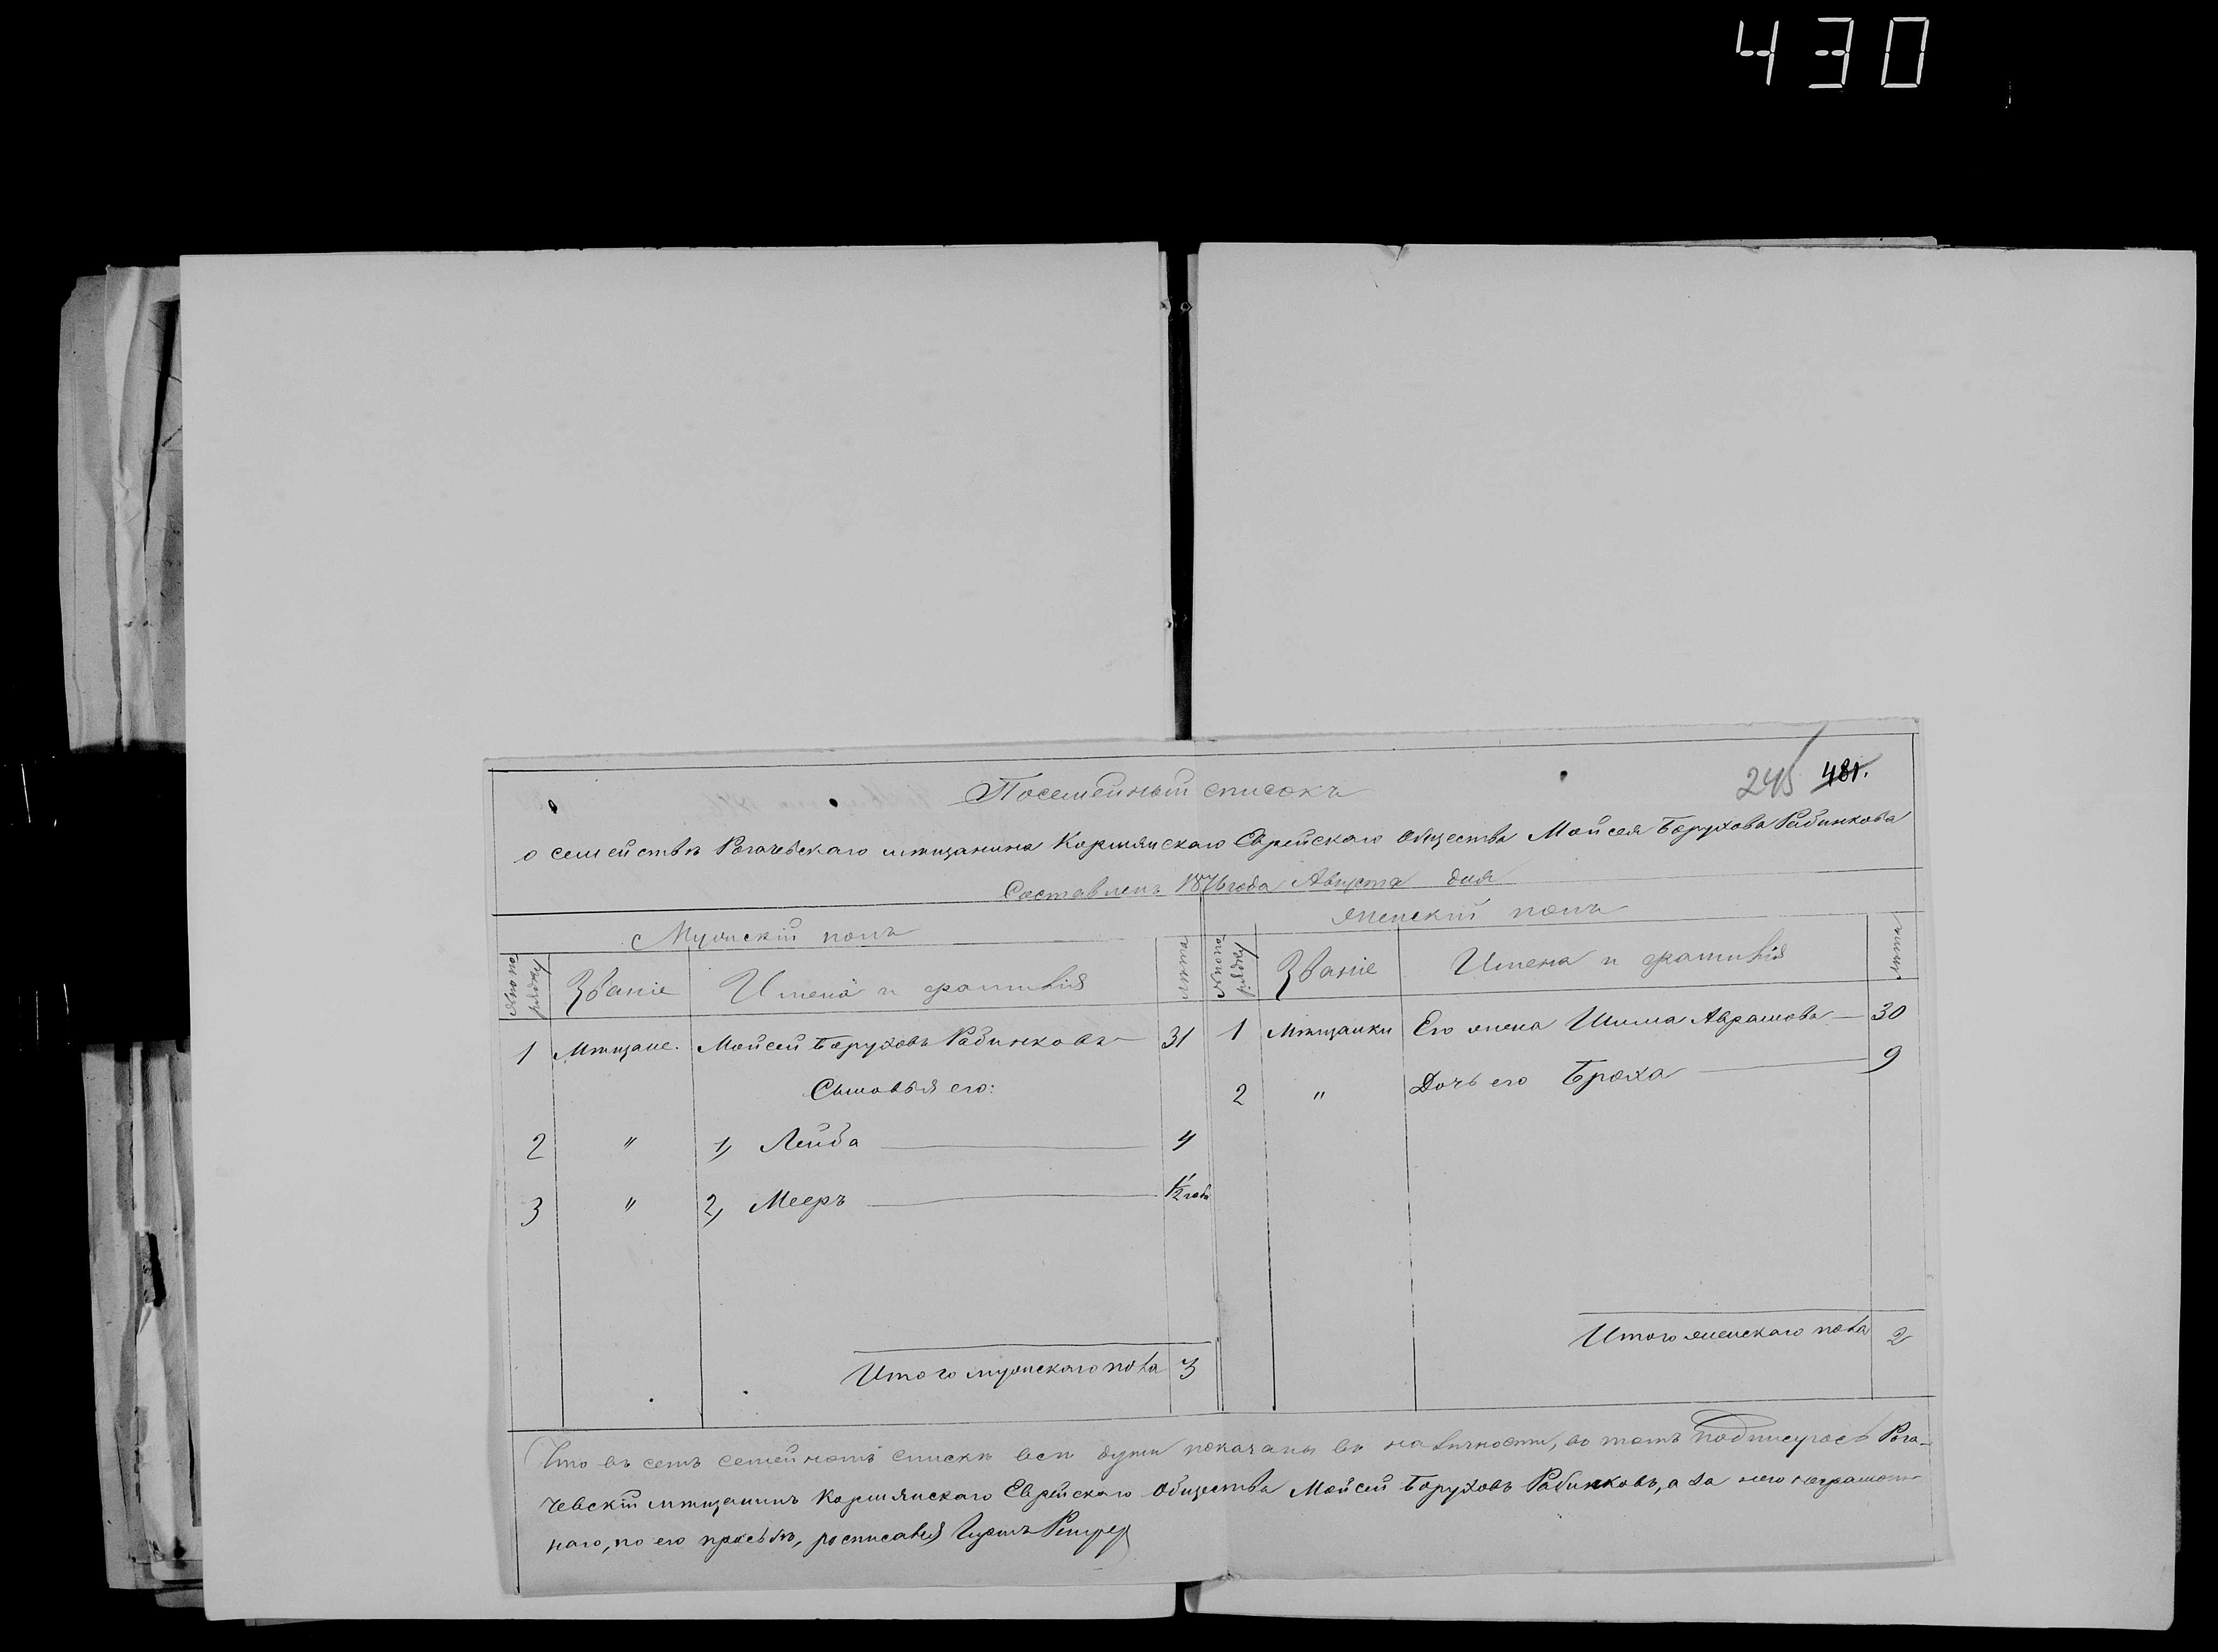 430
Посемейный списокъ
245 481.
о семействѣ Рогачевскаго мѣщанина Кормянскаго Еврейскаго Общества Мойсея Борухова Рабинкова
Составленъ 1876 года Августа дня
Мужскій полъ
Женскій полъ
№ по порядку
Званіе
Имена и фамилія
лѣта
№ по порядку
Званіе
Имена и фамилія
лѣта
1 Мѣщане. Мойсей Боруховъ Рабинковъ 31
1 Мѣщанки Его жена Шима Абрамова 30
Сыновья его:
2 " Дочь его Броха 9
2 " 1, Лейба 4
3 " 2, Мееръ 1/2 года
Итого женскаго пола 2
Итого мужскаго пола 3
Что въ семъ семейномъ спискѣ всѣ души показаны въ наличности, въ томъ подписуюсь Рога-
чевскій мѣщанинъ Кормянскаго Еврейскаго Общества Мойсей Боруховъ Рабинковъ, а за него неграмот-
наго, по его просьбѣ, росписался